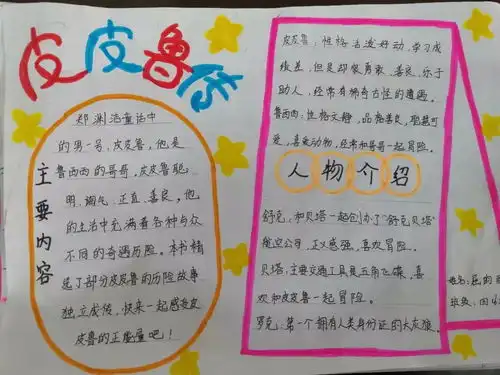 皮皮鲁传
主要内容
郑渊洁童话中
的男一号，皮皮鲁，他是
鲁西西的哥哥，皮皮鲁聪
明、调气、正直、善良，他
的生活中充满着各种与众
不同的奇遇历险。本书精
选了部分皮皮鲁的历险故事
独立成传，快来一起感受皮
皮鲁的正能量吧！
皮皮鲁，性格活泼好动，学习成
绩差，但是却很勇敢、善良、乐于
助人，经常有稀奇古怪的遭遇。
鲁西西：性格文静，品格善良，聪慧可
爱，喜爱动物，经常和哥哥一起冒险。
人物介绍
舒克，和贝塔一起创办了“舒克贝塔”
航空公司，正义感强，喜欢冒险。
贝塔，主要交通工具是五角飞碟，喜
欢和皮皮鲁一起冒险。
罗克，第一个拥有人类身份证的大灰狼。
姓名：
班级：